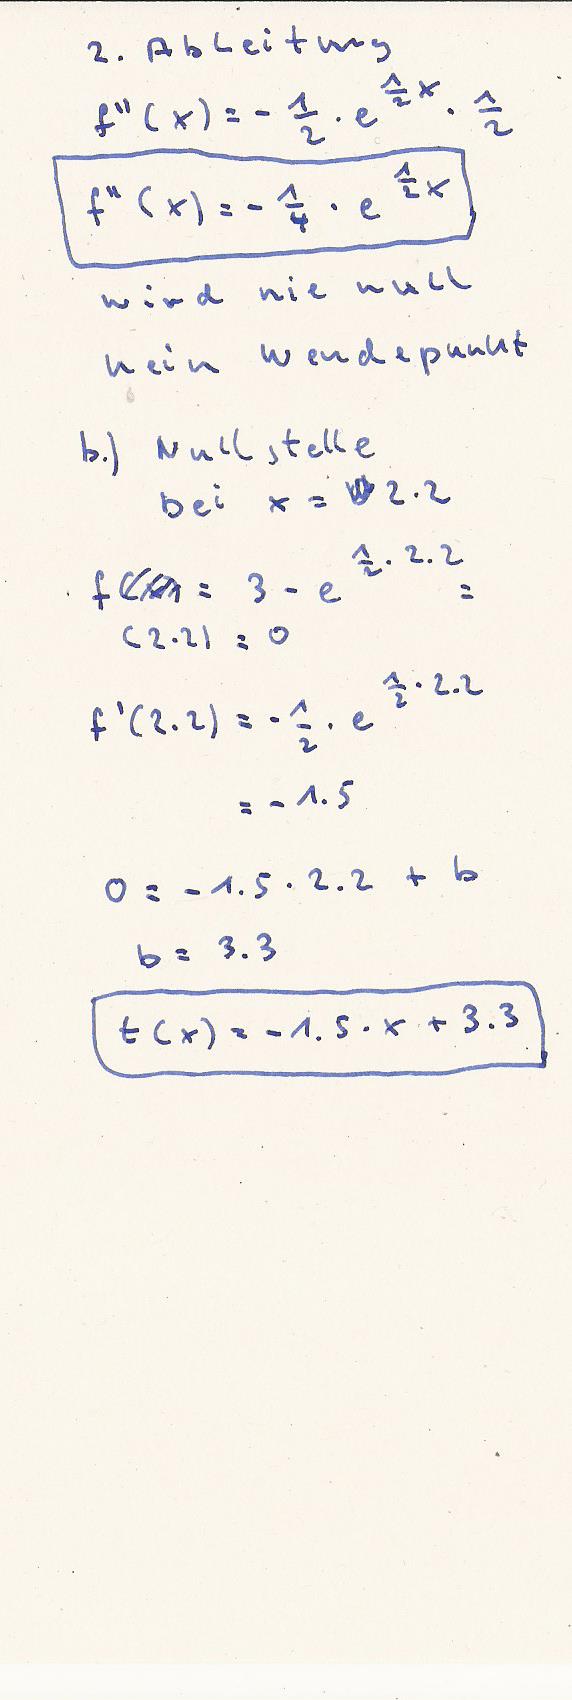 2. Ableitung
f''(x) = - 1/2 · e^(1/2 x) · 1/2
f''(x) = - 1/4 · e^(1/2 x)
wird nie null
kein Wendepunkt
b.) Nullstelle
bei x = 2.2
f = 3 - e^(1/2 · 2.2) =
(2.2) = 0
f'(2.2) = - 1/2 · e^(1/2 · 2.2)
= - 1.5
0 = - 1.5 · 2.2 + b
b = 3.3
t(x) = - 1.5 · x + 3.3